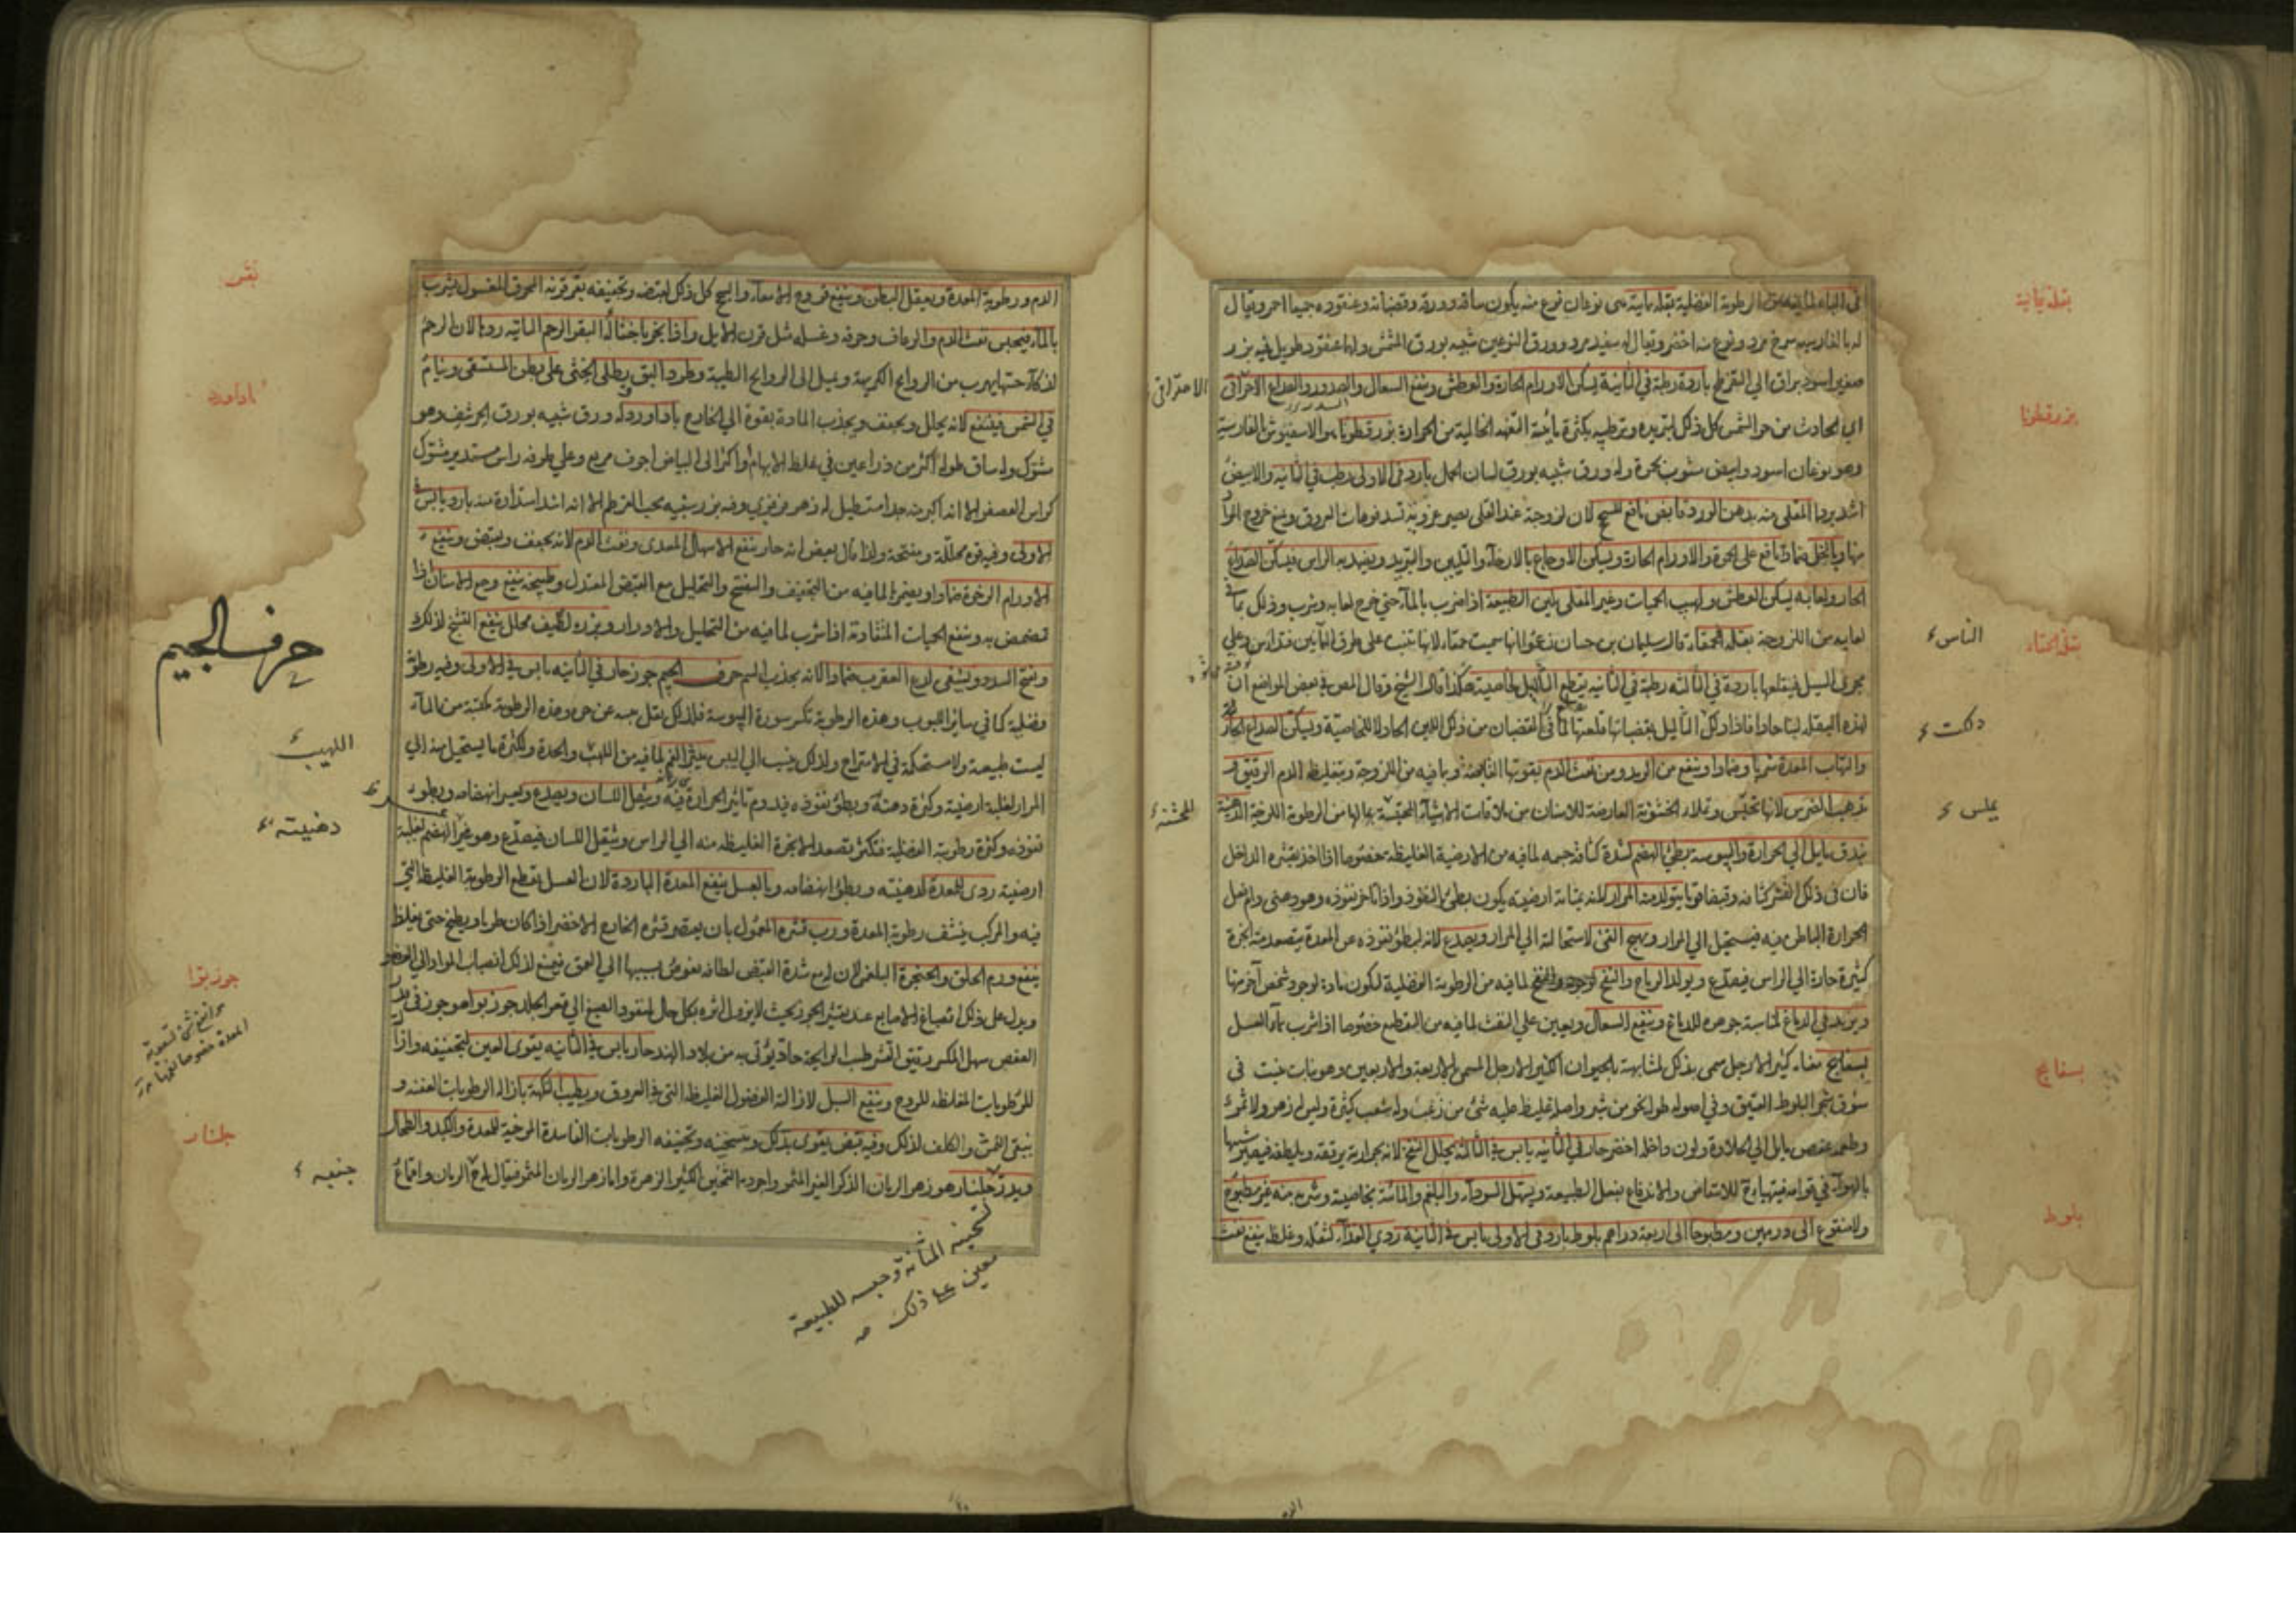 في الباه لما فيه من الرطوبة الفضلية بقلة يمانية هي نوعان نوع منه يكون ساقه وورقه وقضبانه وعنقوده جميعا احمر ويقال
له بالفارسية سرخ مرد ونوع منه اخضر ويقال له سفيد مرد وورق النوعين شبيه بورق المشمش ولها عنقود طويل فيه بزر
صغير اسود براق الي التفرطح باردة رطبة في الثانية يسكن الاورام الحارة والعطش وينفع السعال والصدور والصداع الاحتراقي
اي الحادث من حر الشمس كل ذلك لتبريده وترطيبه بكثرة مائيته التفهه الخالية من الحرارة بزرقطونا هو الاسفيوش بالفارسية
وهو نوعان اسود وابيض مشوب بحمرة وله ورق شبيه بورق لسان الحمل بارد في الاولى رطب في الثانيه والابيض
اشد بردا المقلي منه بدهن الورد قابض نافع للسحج لان لزوجته عند القلي يصير غروية تسد فوهات العروق ويمنع خروج الدم
منها وبالخل ضمادا نافع على الحمرة والاورام الحارة ويسكن الاوجاع بالارخاء والتليين والتبريد ويضمد به الراس فيسكن الصداع
الحار ولعابه يسكن العطش ولهيب الحميات وغير المقلى يلين الطبيعة اذا ضرب بالمآء حتى خرج لعابه وشرب وذلك لما في
لعابه من اللزوجة بقلة الحمقاء قال سليمان بن حسان زعموا انها سميت حمقاء لانها تنبت على طرق الناس فتداس وعلي
مجرى السيل فيقلعها باردة في الثالثه رطبة في الثانيه يقطع الثآليل بخاصية هكذا قال الشيخ وقال المص في بعض المواضع ان
لهذه البقلة لبنا حادا فاذا دلك الثآليل بقضبانها قلعتها لما في القضبان من ذلك اللبن الحاد لا للخاصية ويسكن الصداع الحار
والتهاب المعدة شربا وضمادا وينفع من الرمد ومن نفث الدم بقوتها القابضة وبما فيه من اللزوجة وبتغليظ الدم الرقيق و
يذهب الضرس لانها تخلس وتملاء الخشونة العارضة للاسنان من ملاقات الاشيآء العفصة بمالها من الرطوبة اللزجة الدهنية
بندق مايل الي الحرارة واليبوسة بطئ الهضم لشدة كثافة جسمه لما فيه من الارضية الغليظه خصوصا اذا اخذ بقشره الداخل
فان في ذلك القشر كثافه وقبضا قويا يتولد منه المرار لانه بمتانة ارضيته يكون بطئ النفوذ واذا تاخر نفوذه وهو دهني وانفعل
الحرارة الباطن فيه فيستحيل الي المرار ويهيج القئ لاستحالته الي المرار ويصدع لانه لبطؤ نفوذه عن المعدة يتصعد منه ابخرة
كثيرة حارة الي الراس فيصدع ويولد الرياح والنفخ لوجود والنفخ لما فيه من الرطوبة الفضلية لكون مادة لوجود شخص آخر منها
ويزيد في الدماغ لمناسبة جوهره للدماغ وينفع السعال ويعين على النفث لما فيه من التقطيع خصوصا اذا شرب بمآء العسل
بسفايج معناه كثير الارجل سمي بذلك لمشابهته بالحيوان الكثير الارجل المسمى بالاربعة والاربعين وهو نبات ينبت في
سوق شجر البلوط العتيق وفي اصوله طوله نحو من شبر واصله غليظ عليه شئ من زغب وله شعب كثيرة وليس له زهر ولا ثمرة
وطعمه عفص مايل الي الحلاوة ولون داخله اخضر حار في الثانيه يابس في الثالثه يحلل النفخ لانه بحرارته يرققه ويلطفه فيصير شبيها
بالهوآء في قوامه فيتهيأ للانتفاض والاندفاع بفعل الطبيعة ويسهل السودآء والبلغم والمائية بخاصية وشربه منه غير مطبوخ
ولا منقوع الى درهمين ومطبوخا الى اربعة دراهم بلوط بارد في الاولى يابس في الثانيه ردي الغذآء لثقله وغلظه ينفع نفث
بقلة يمانية
بزرقطونا
بقلة الحمقاء
بسفايج
بلوط
الاحتراقي
الناس
دلكت
يملس
للخشنة
الدم ورطوبة المعدة ويعقل البطن وينفع قروح الامعاء والسحج كل ذلك لقبضه وتجفيفه بقر قرنه المحرق المغسول يشرب
بالمآء فيحبس نفث الدم والرعاف وحرقه وغسله مثل قرن الايل واذا بخر باخثاء البقر الرحم الناتيه ردها لان الرحم
لذكاء حسها يهرب من الروايح الكريهة ويميل الى الروايح الطيبة وطرد البق ويطلي الخثى على بطن المستسقى وينام
في الشمس فينتفع لانه يحلل ويجفف ويجذب المادة بقوة الي الخارج باداورد له ورق شبيه بورق الحرشف وهو
مشوك وله ساق طوله اكثر من ذراعين في غلظ الابهام واكثر الى البياض اجوف مربع وعلي طرفه راس مستدير مشوك
كراس العصفر الا انه اكبر منه جدا مستطيل له زهر فرفيري وفيه بزر شبيه بحب القرطم الا انه اشد استدارة منه بارد يابس في
الاولى وفيه قوة محللة ومفتحة ولذا قال بعض انه حار ينفع الاسهال المعدى ونفث الدم لانه يجفف ويقبض وينفع
الاورام الرخوة ضمادا ويضمر لما فيه من التجفيف والتفتح والتحليل مع القبض المعتدل وطبيخه ينفع وجع الاسنان اذا
تمضمض به وينفع الحيات المتقادمة اذا شرب لما فيه من التحليل والادرار وبزره لطيف محلل ينفع التشنج لذلك
ويفتح السدد ويشفى لدغ العقرب ضمادا لانه يجذب السم حرف الجيم جوز حار في الثانيه يابس في الاولى وفيه رطوبة
فضلية كما في ساير الحبوب وهذه الرطوبة تكسر سورة اليبوسة فلذلك يقل يبسه عن حره وهذه الرطوبة مكتسبة من المآء
ليست طبيعية ولا مستحكمة في الامتزاج ولذلك ينسب الي اليبس يبثر الفم لما فيه من اللهب والحدة ولكثرة ما يستحيل منه الي
المرار لغلبة ارضيته وكثرة دهنيته وبطؤ نفوذه فيدوم تاثير الحرارة فيه ويثقل اللسان ويصدع وعسر انهضامه وبطوء
نفوذه وكثرة رطوبته الفضلية فتكثر تصعد الابخرة الغليظه منه الي الراس ويثقل اللسان فيصدع وهو عسر الهضم لغلبة
ارضيته ردى للمعدة لدهنيته وبطؤ انهضامه وبالعسل ينفع المعدة الباردة لان العسل يقطع الرطوبة الغليظة التي
فيه والمركب ينشف رطوبة المعدة ورب قشره المعمول بان يعصر قشره الخارج الاخضر اذا كان طريا ويطبخ حتى يغلظ
ينفع ورم الحلق والحنجرة البلغمي لان له مع شدة القبض لطافة يغوص بسببها الي العمق فيمنع لذلك انصباب المواد الي العضو
ويدل على ذلك انصباغ الاصابع عند تقشير الجوز بحيث لا يزول اثره بكل حال لنفوذ الصبغ الي قعر الجلد جوز بوا هو جوز في قدر
العفص سهل المكسر رقيق القشر طيب الرايحة حاد يؤتى به من بلاد الهند حار يابس في الثانيه يقوى العين لتجفيفه وازالة
للرطوبات المغلظه للروح وينفع السبل لازالة الفضول الغليظه التي في العروق ويطيب النكهة بازالة الرطوبات العفنة و
ينقى النمش والكلف لذلك وفيه قبض يقوى بذلك وتسخينه وتجفيفه الرطوبات الفاسدة المرخية للمعدة والكبد والطحال
ويدر جلنار هو زهر الرمان الذكر الغير المثمر واجوده الثخين الكثير الزهرة واما زهر الرمان المثمر فيقال له الرمان واقماع
بقر
باداورد
حرف الجيم
اللهيب
دهنيته
جوز بوا
جلنار
لتسخينه المثانة وحبسه للطبيعة
معين على ذلك